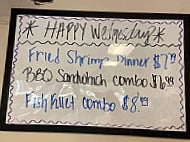 * HAPPY Wednesday *
Fried Shrimp Dinner $7.99
BBQ Sandwhich combo $6.99
Fish Fillet combo $8.49